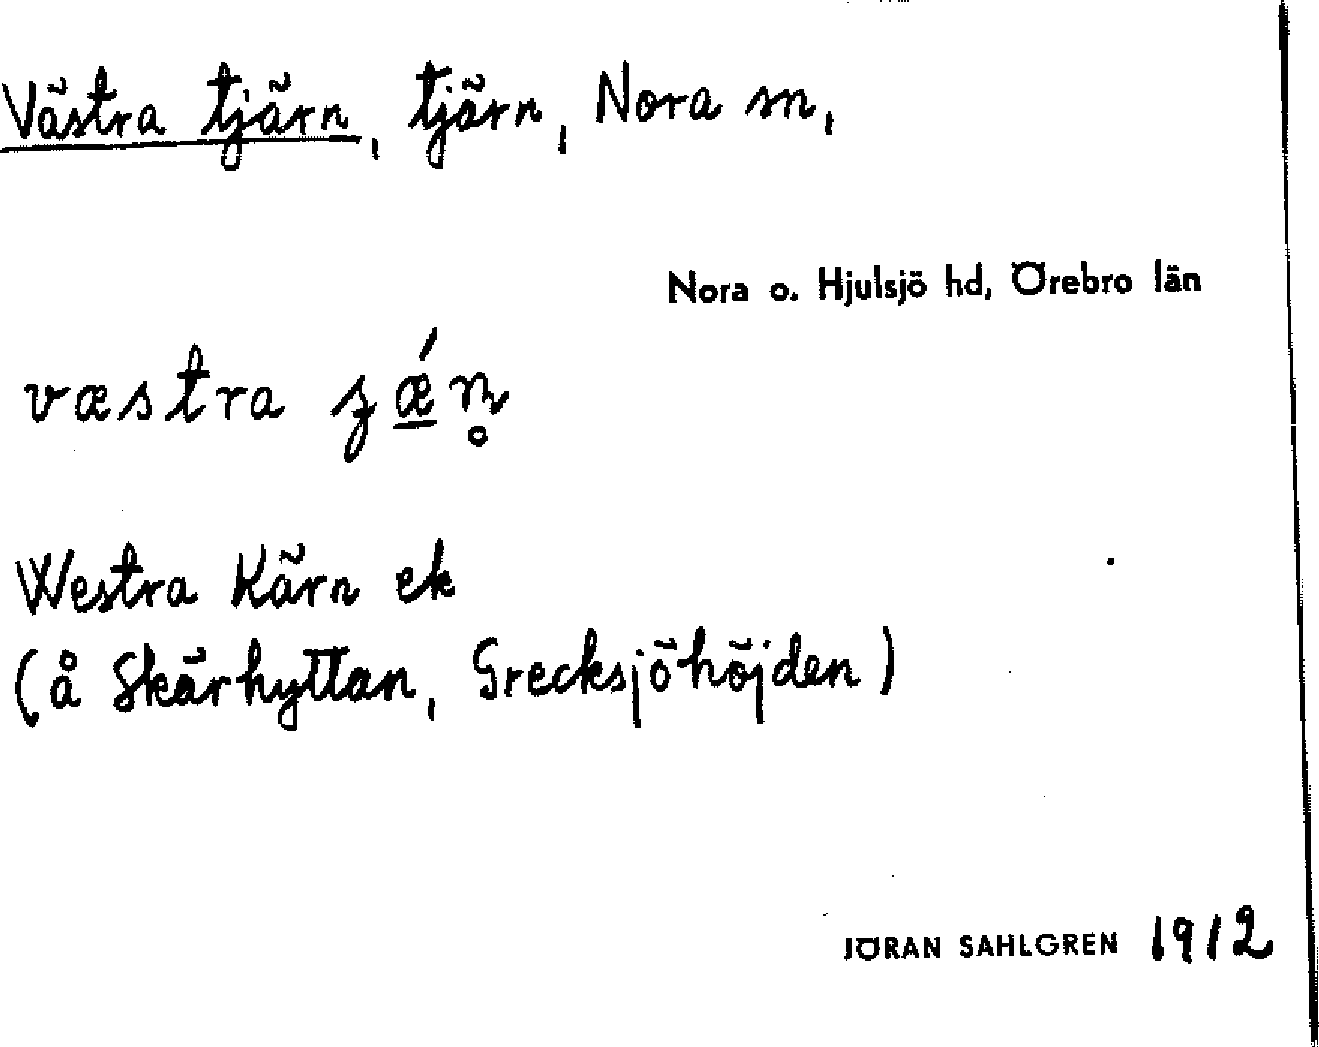 Västra tjärn, tjärn, Nora sn,
Nora o. Hjulsjö hd, Örebro län
væstra
Westra Kärn ek
(å Skärhyttan, Grecksjöhöjden)
JÖRAN SAHLGREN 1912